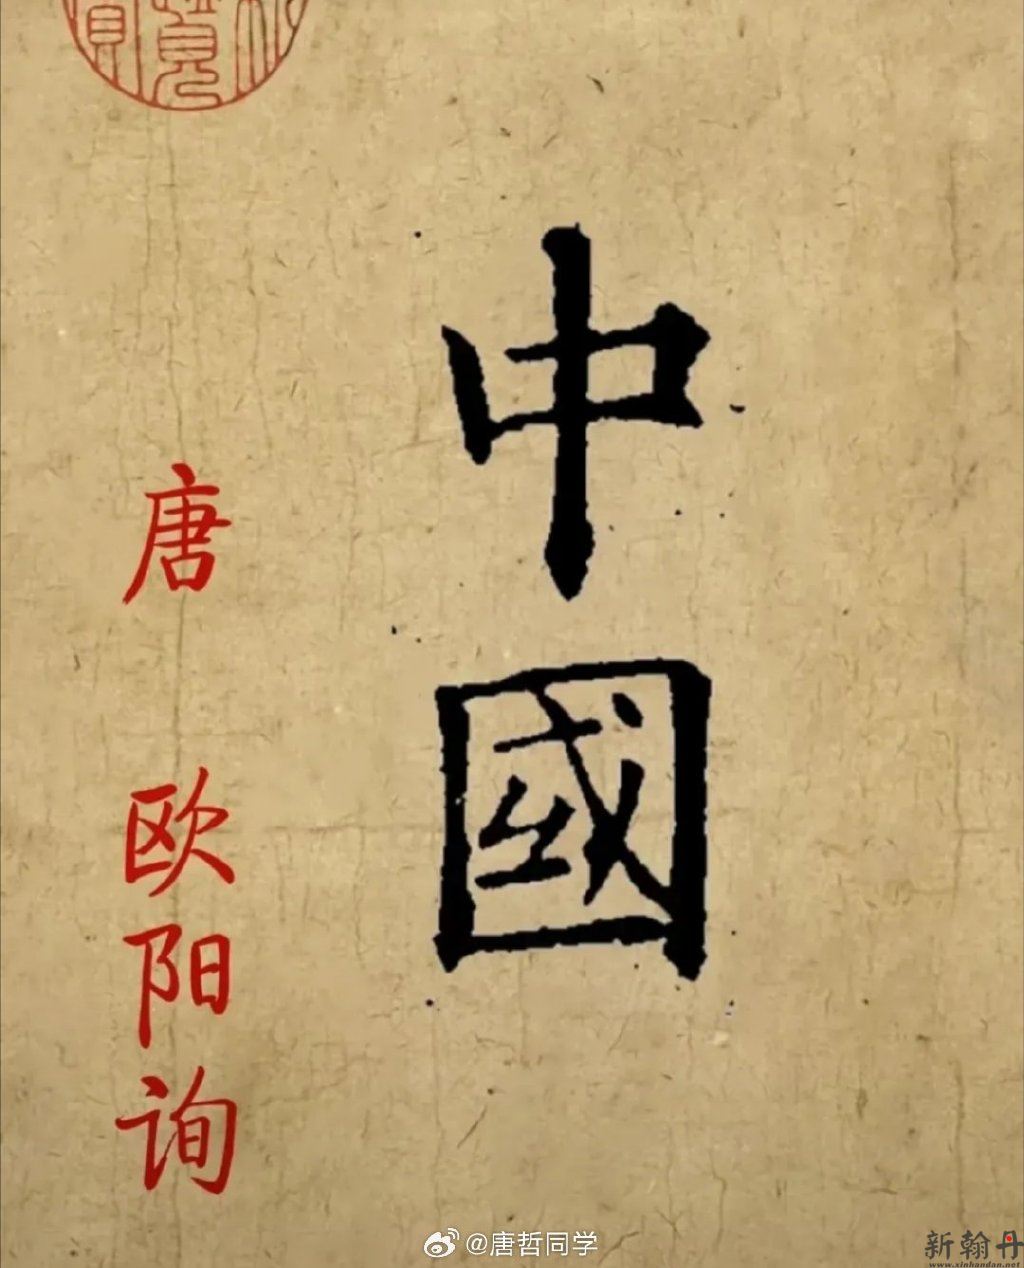 中國
唐 欧阳询
@唐哲同学
新翰丹
www.xinhandan.net